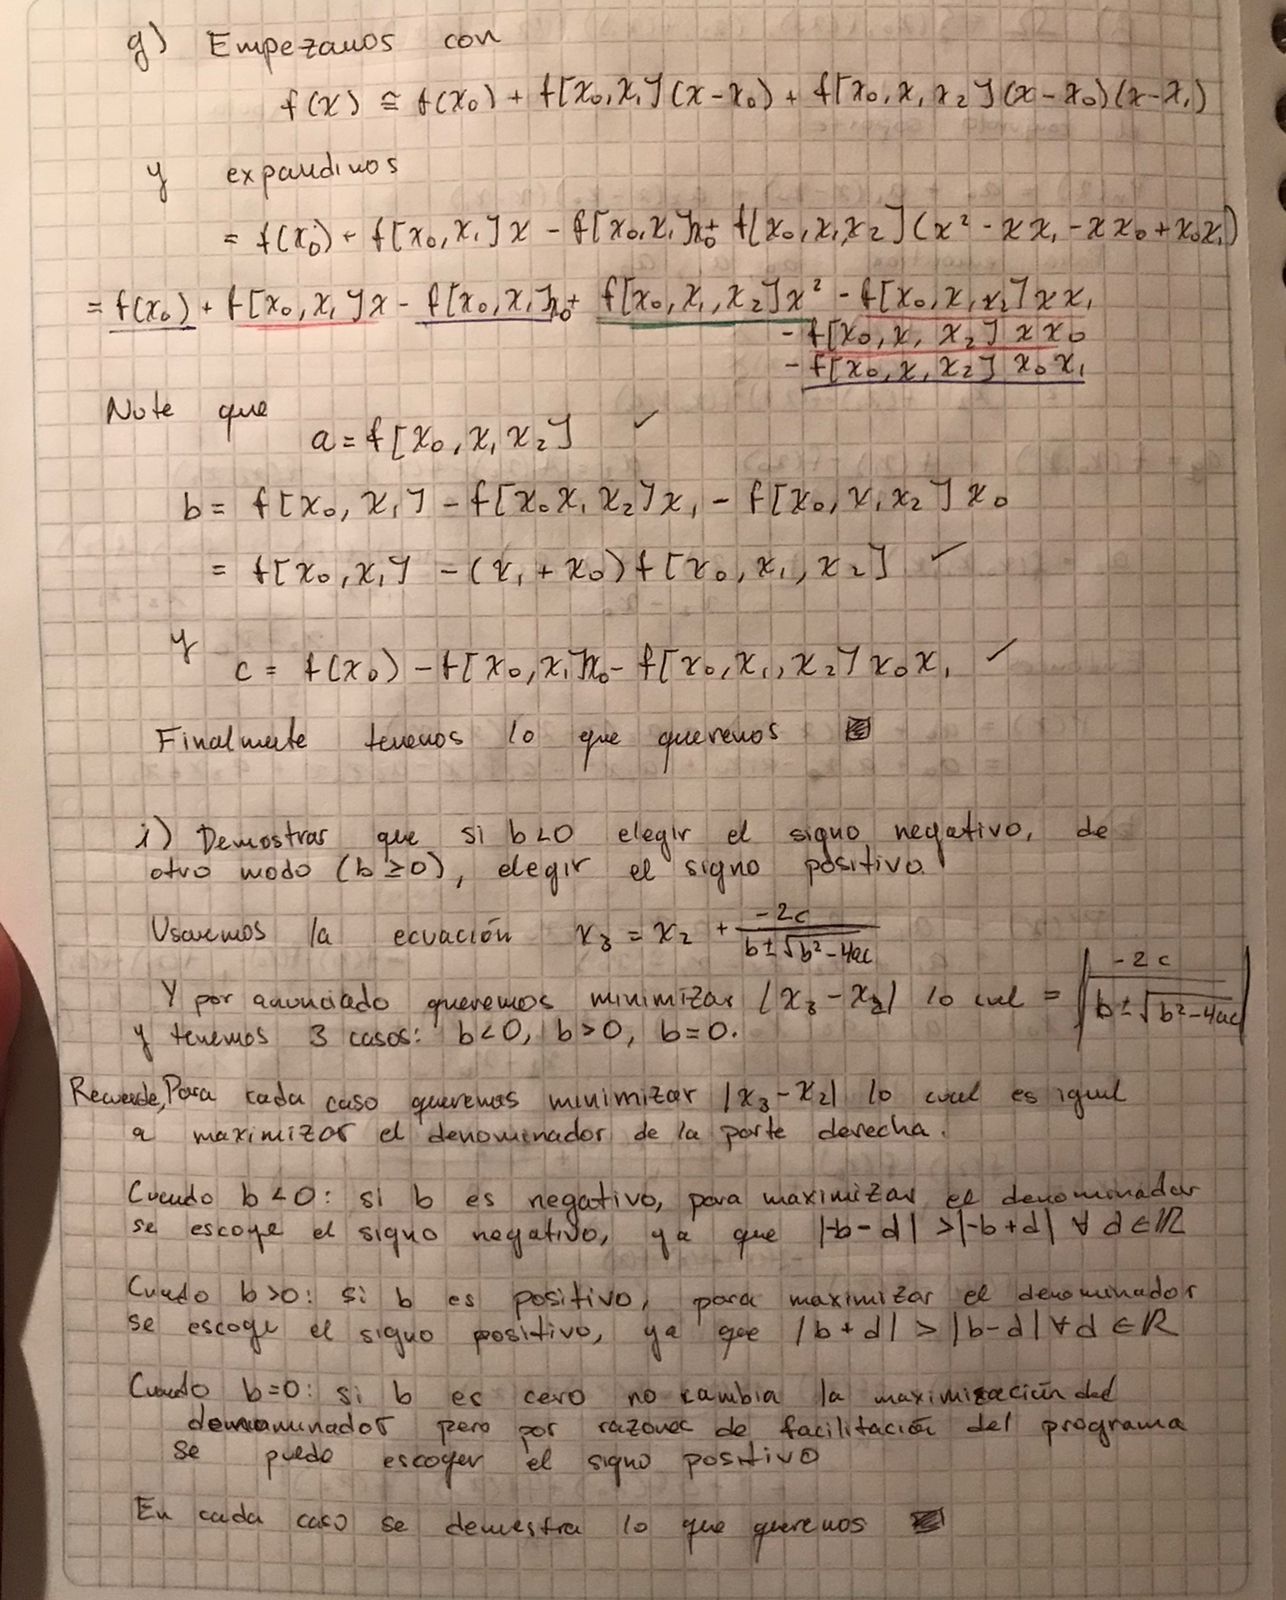 g) Empezamos con
f(x) ≅ f(x₀) + f[x₀,x₁](x-x₀) + f[x₀,x₁ x₂](x-x₀)(x-x₁)
y expandimos
= f(x₀) + f[x₀,x₁]x - f[x₀,x₁]x₀ + f[x₀,x₁,x₂](x² - xx₁ - xx₀ + x₀x₁)
= f(x₀) + f[x₀,x₁]x - f[x₀,x₁]x₀ + f[x₀,x₁,x₂]x² - f[x₀,x₁,x₂]xx₁
- f[x₀,x₁ x₂] xx₀
- f[x₀,x₁,x₂] x₀x₁
Note que
a = f[x₀,x₁ x₂] ✓
b = f[x₀,x₁] - f[x₀ x₁ x₂]x₁ - f[x₀,x₁,x₂]x₀
= f[x₀,x₁] - (x₁+x₀)f[x₀,x₁,x₂] ✓
y
c = f(x₀) - f[x₀,x₁]x₀ - f[x₀,x₁,x₂]x₀x₁ ✓
Finalmente tenemos lo que queremos
i) Demostrar que si b<0 elegir el signo negativo, de
otro modo (b≥0), elegir el signo positivo.
Usaremos la ecuación x₃ = x₂ + -2c / (b±√(b²-4ac))
Y por anunciado queremos minimizar |x₃-x₂| lo cual = |-2c / (b±√(b²-4ac))|
y tenemos 3 casos: b<0, b>0, b=0.
Recuerde, Para cada caso queremos minimizar |x₃-x₂| lo cual es igual
a maximizar el denominador de la parte derecha.
Cuando b<0: si b es negativo, para maximizar el denominador
se escoge el signo negativo, ya que |-b-d| > |-b+d| ∀ d∈ℝ
Cuando b>0: si b es positivo, para maximizar el denominador
se escoge el signo positivo, ya que |b+d| > |b-d| ∀ d∈ℝ
Cuando b=0: si b es cero no cambia la maximización del
denominador pero por razones de facilitación del programa
se puede escoger el signo positivo
En cada caso se demestra lo que queremos